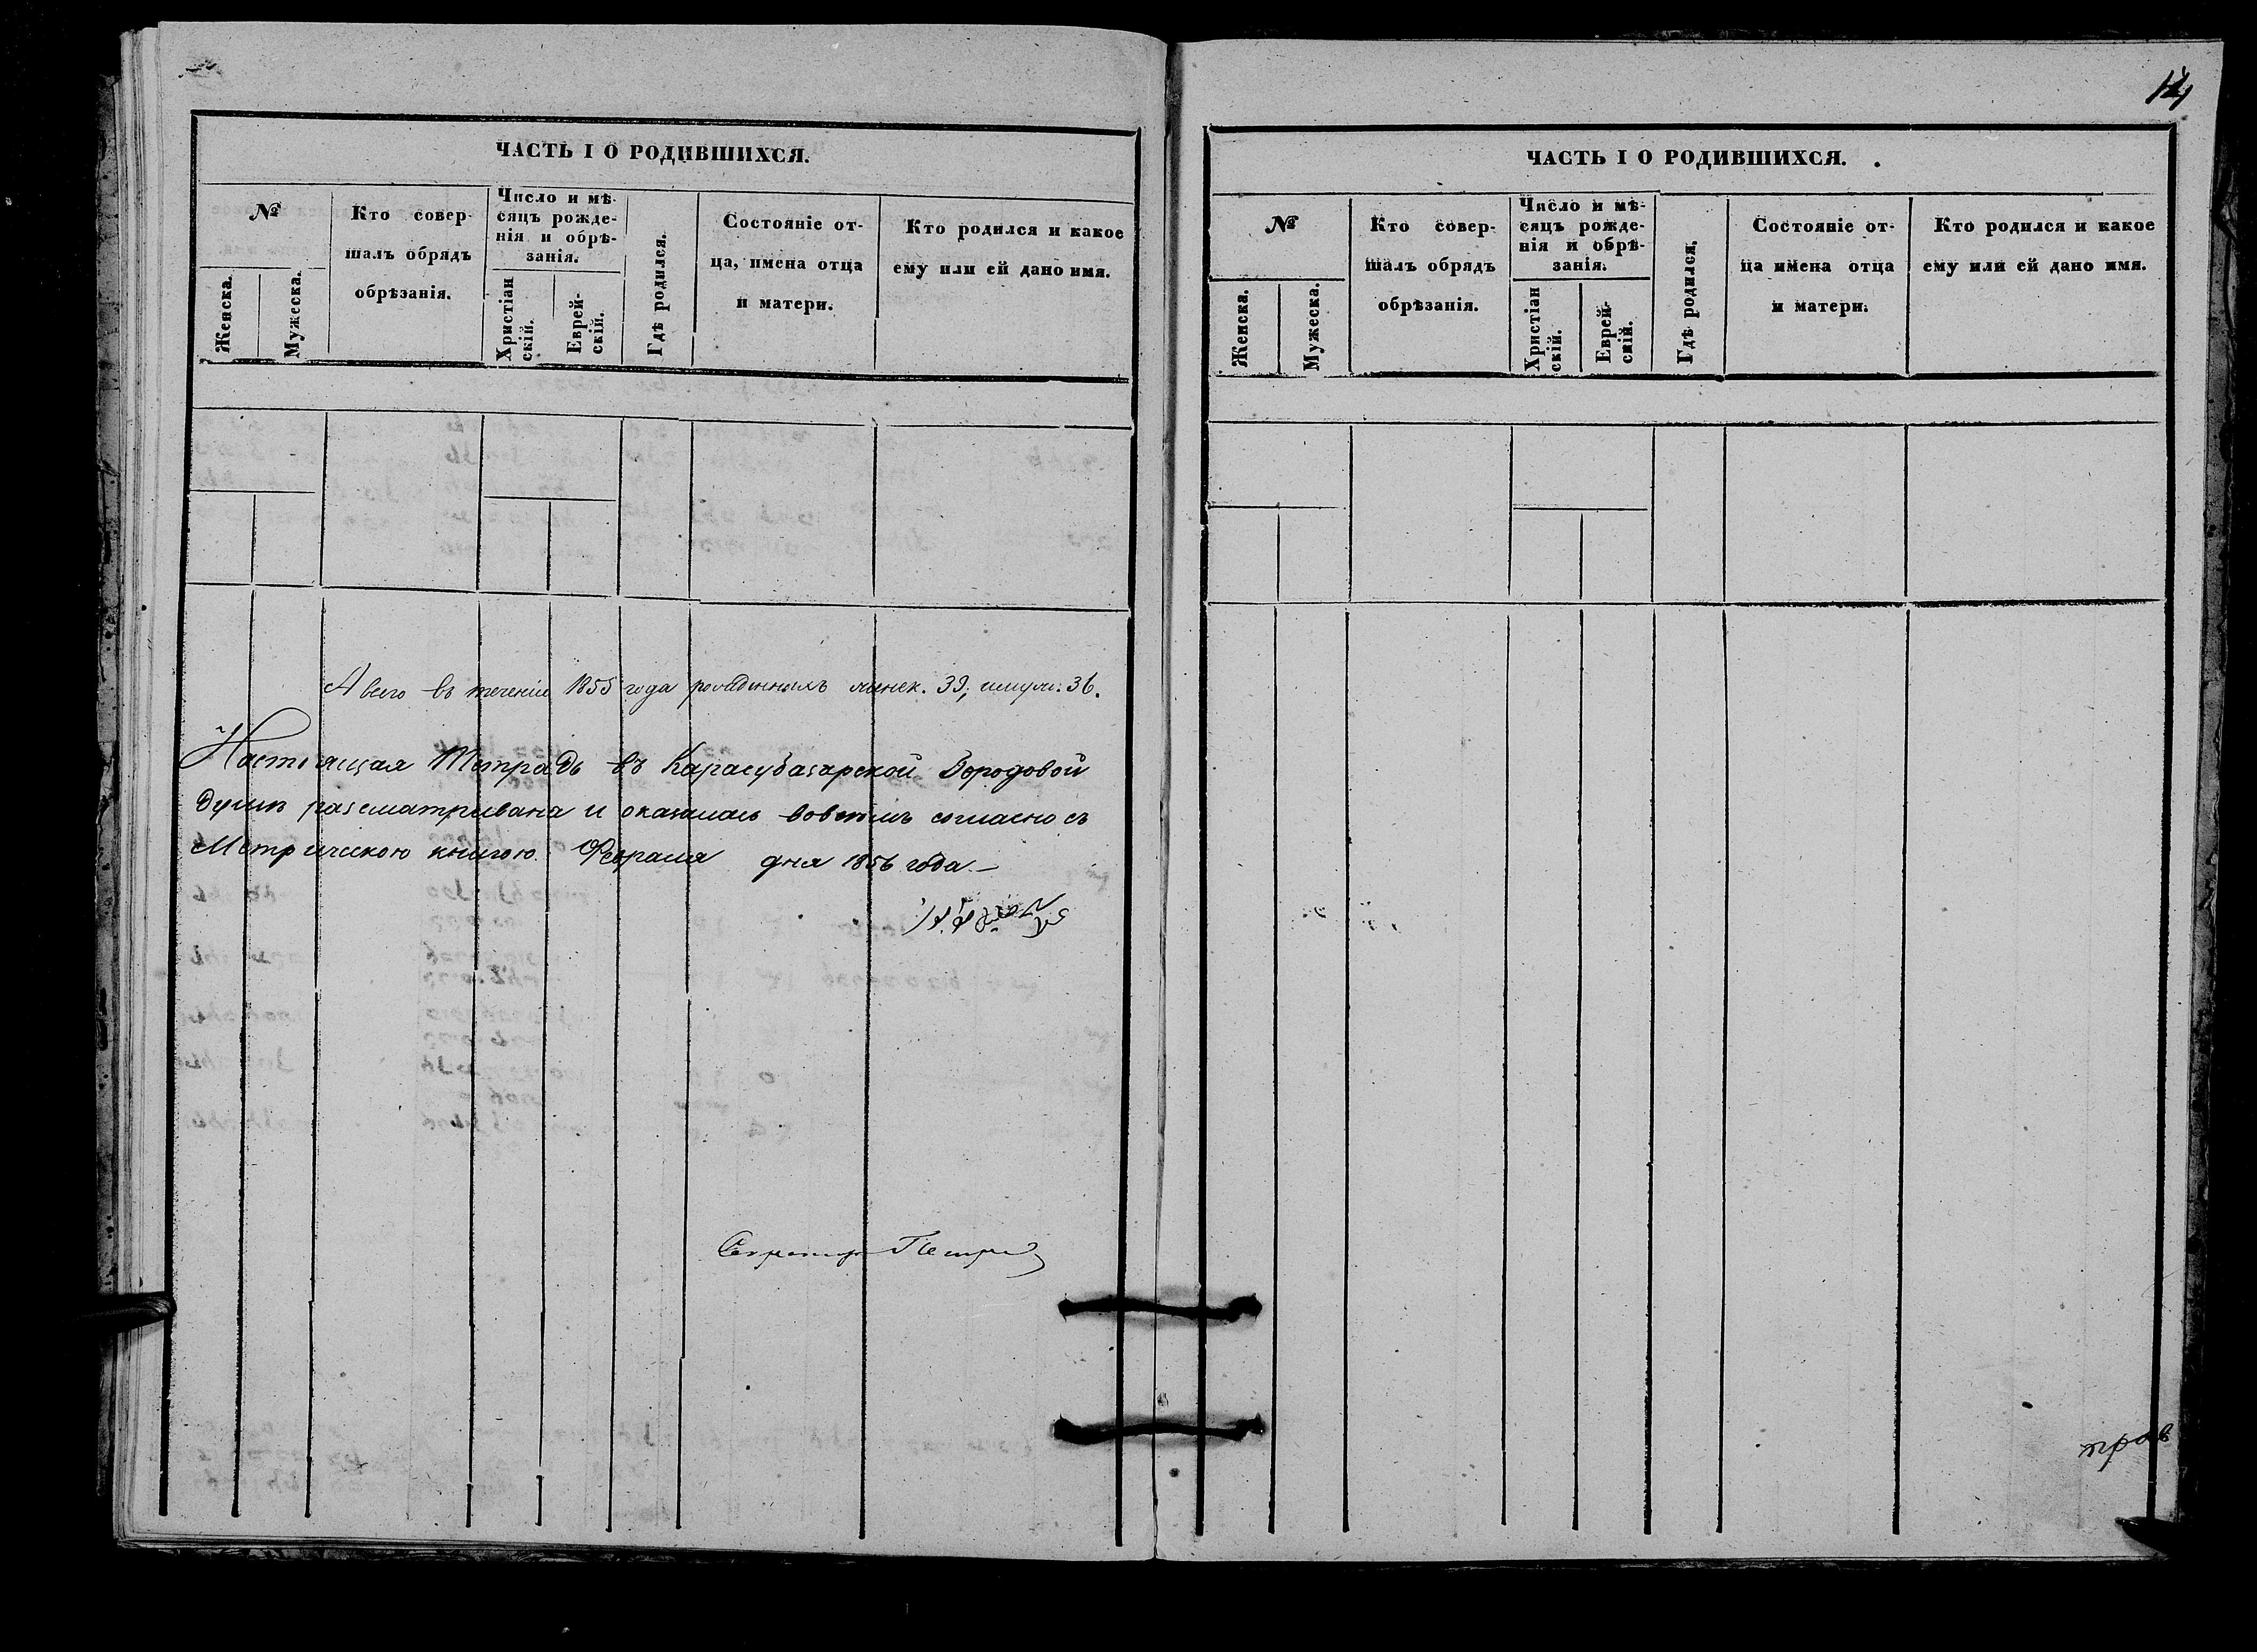 14
ЧАСТЬ I О РОДИВШИХСЯ.
№
Женска.
Мужеска.
Кто совер-
шалъ обрядъ
обрѣзанія.
Число и мѣ-
сяцъ рожде-
нія и обрѣ-
занія.
Христіан
скій.
Еврей-
скій.
Гдѣ родился.
Состояніе от-
ца, имена отца
и матери.
Кто родился и какое
ему или ей дано имя.
А всего въ теченіи 1855 года рожденныхъ женск. 39, и муж. 36.
Настоящая Тетрадь въ Карасубазарской Городовой
думѣ разсматривана и оказалась во всемъ согласно съ
Метрическою книгою. Февраля дня 1856 года.—
Секретарь
ЧАСТЬ I О РОДИВШИХСЯ.
№
Женска.
Мужеска.
Кто совер-
шалъ обрядъ
обрѣзанія.
Число и мѣ-
сяцъ рожде-
нія и обрѣ-
занія.
Христіан
скій.
Еврей-
скій.
Гдѣ родился.
Состояніе от-
ца имена отца
и матери.
Кто родился и какое
ему или ей дано имя.